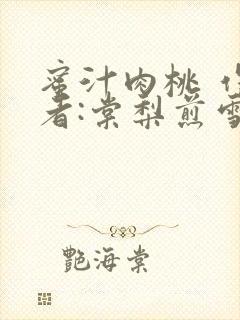 蜜汁肉桃 作
者:棠梨煎雪
艷海棠